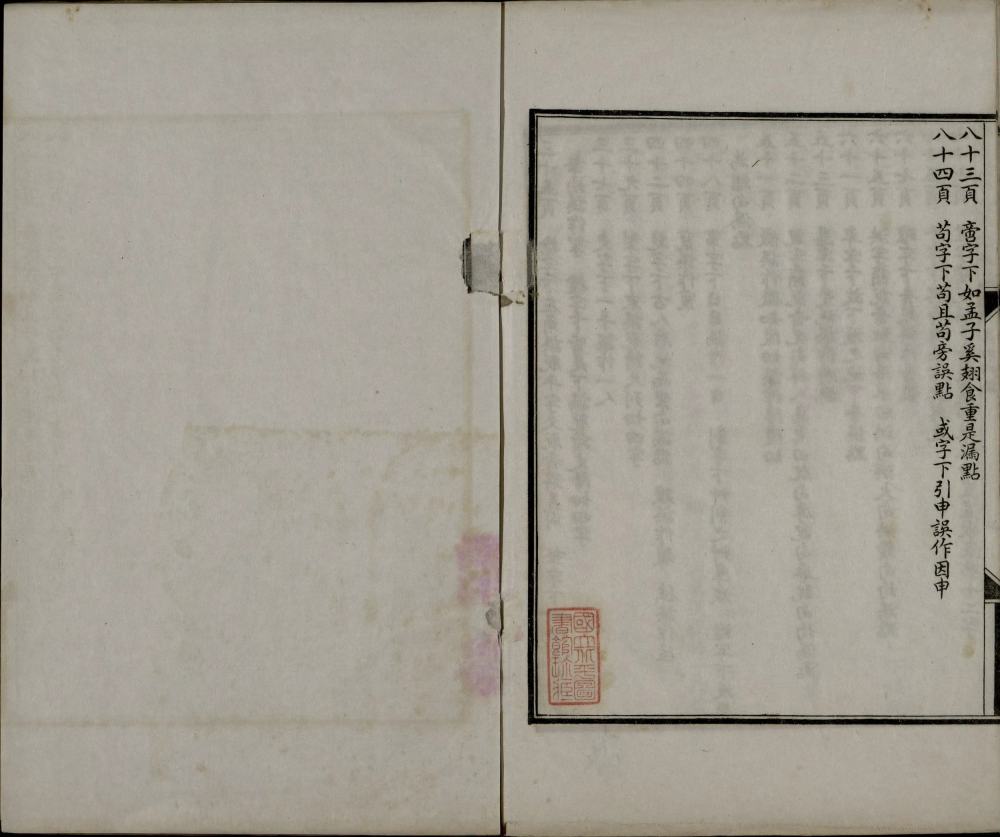 八十三頁 啻字下如孟子奚翅食重是漏點
八十四頁 茍字下茍且茍旁誤點 或字下引申誤作因申
國立北平圖書館珍藏